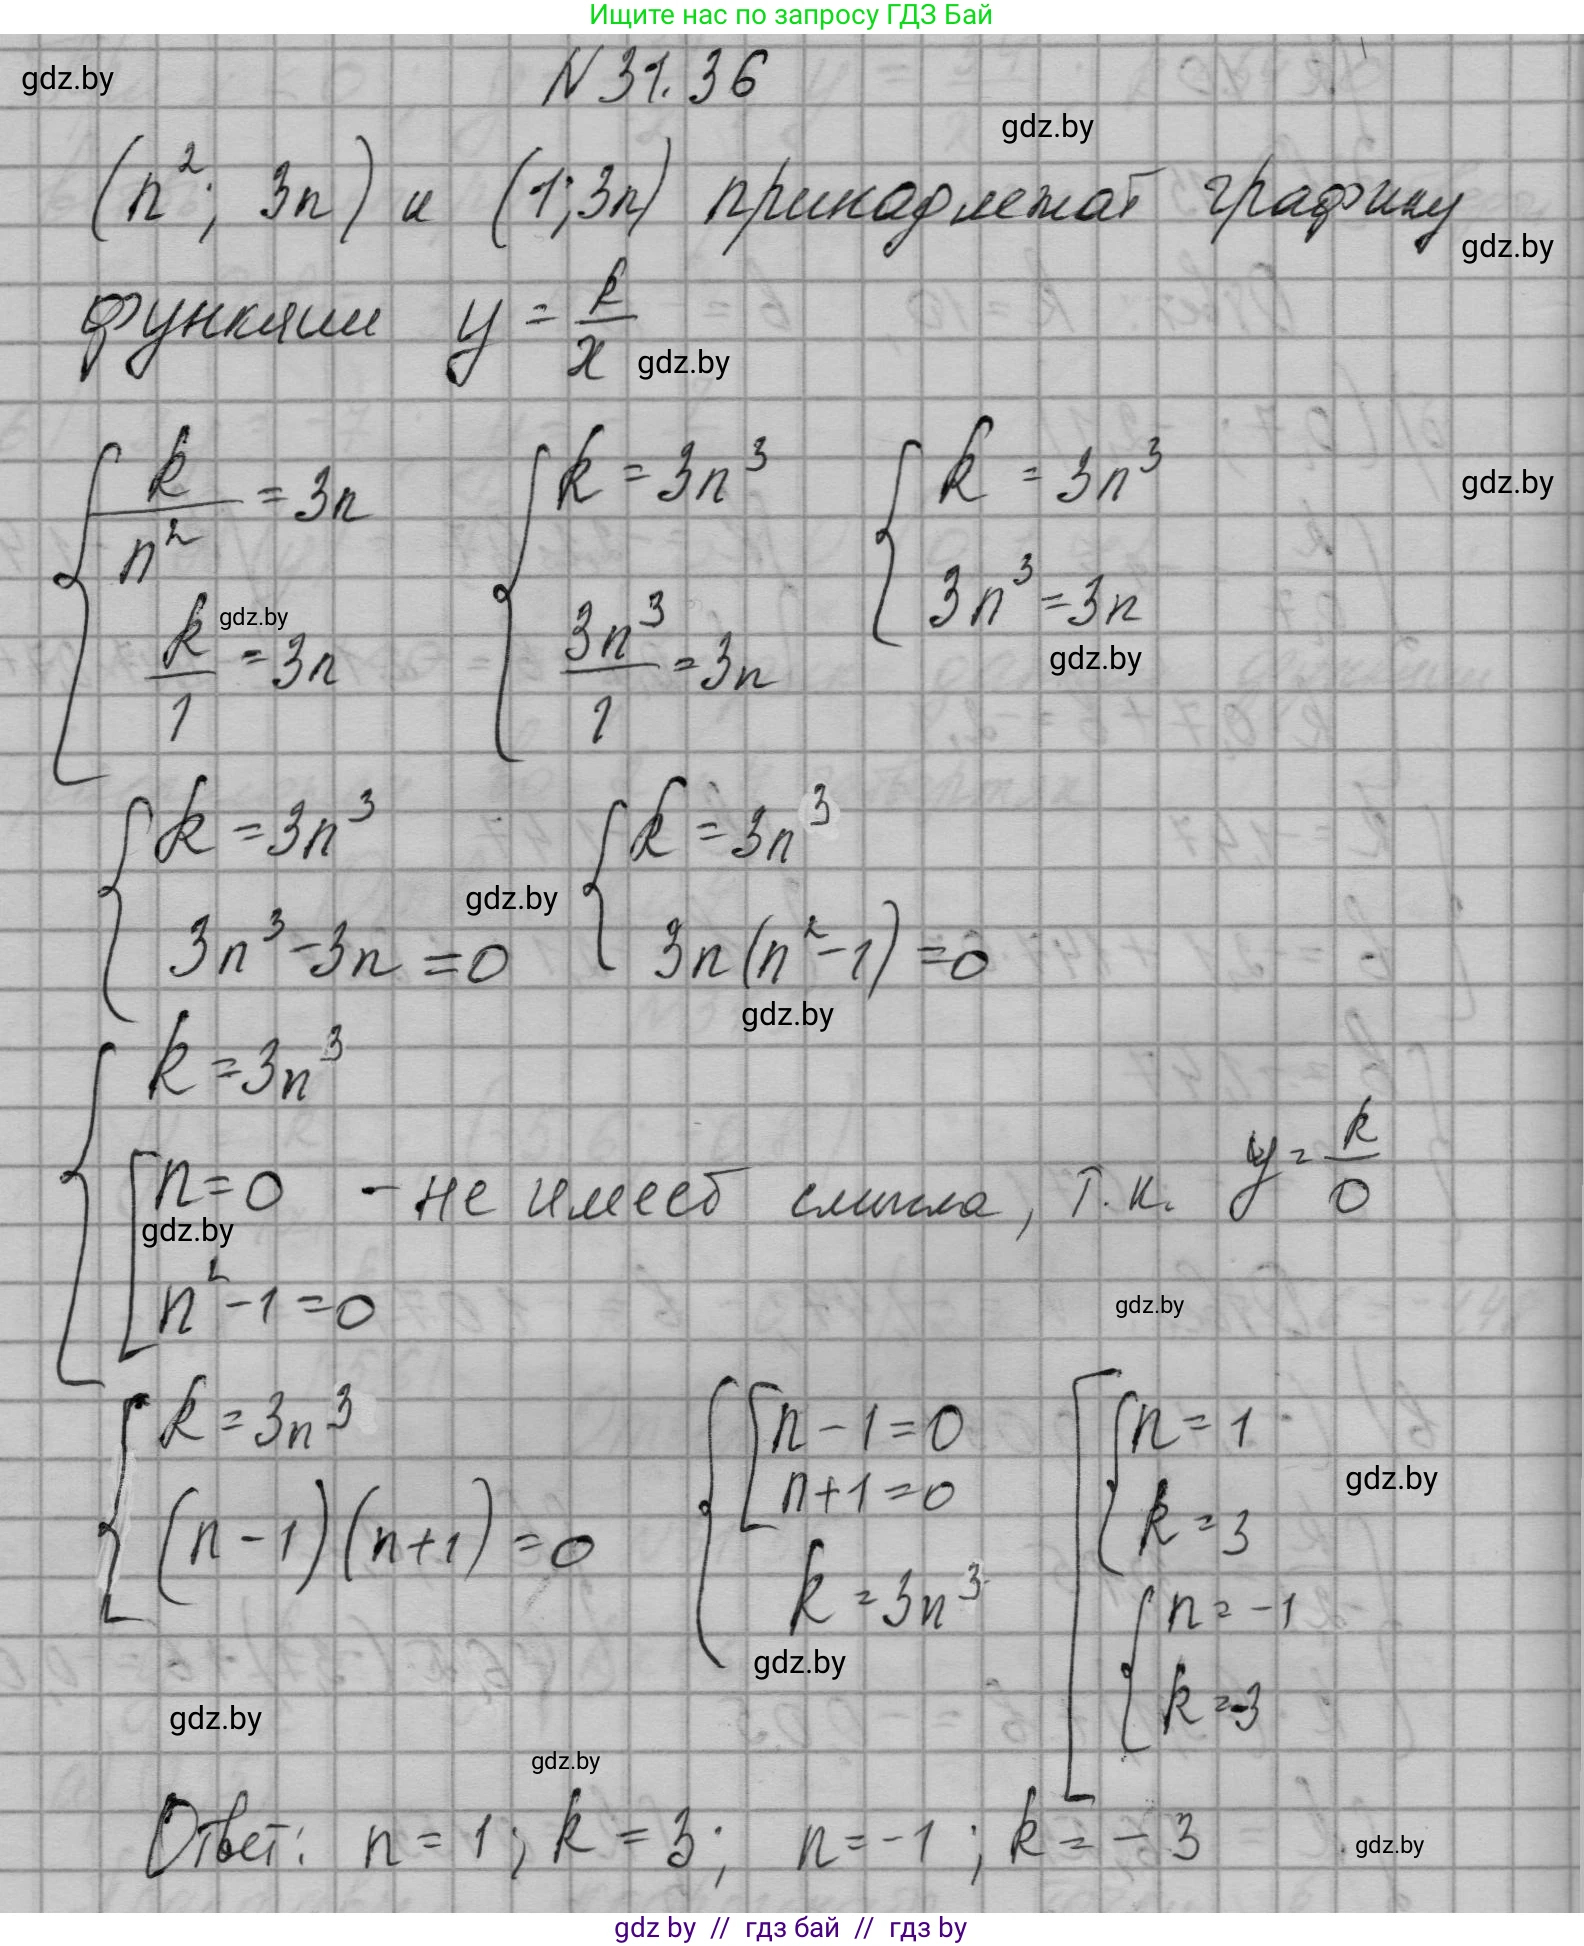 Ищите нас по запросу ГДЗ Бай
N 31.36
gdz.by
gdz.by
(n²; 3n) и (1; 3n) принадлежат графику
gdz.by
функции y = k/x
gdz.by
{ k/n² = 3n { k = 3n³ { k = 3n³
gdz.by
k/1 = 3n 3n³/1 = 3n 3n³ = 3n
gdz.by
gdz.by
{ k = 3n³ { k = 3n³
gdz.by
3n³ - 3n = 0 3n(n² - 1) = 0
gdz.by
{ k = 3n³
[ n = 0 - не имеет смысла, т.к. y = k/0
gdz.by
n² - 1 = 0
gdz.by
{ k = 3n³ { [ n - 1 = 0 [ { n = 1
n + 1 = 0
gdz.by
(n - 1)(n + 1) = 0 k = 3n³ k = 3
{ n = -1
gdz.by
k = -3
gdz.by
gdz.by
Ответ: n = 1; k = 3; n = -1; k = -3
gdz.by
gdz by // гдз бай // гдз by